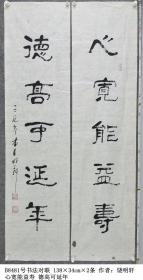 心寬能益壽
德高可延年
B8481号书法对联 138×34cm×2条 作者：饶明轩
心宽能益寿 德高可延年